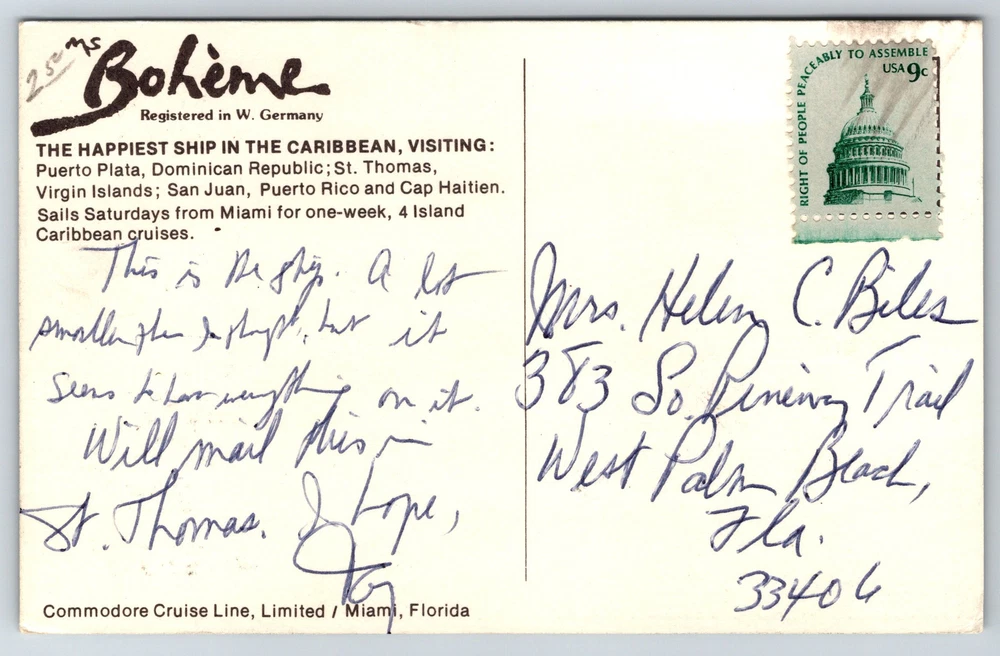 25c
MS
Bohème
Registered in W. Germany
THE HAPPIEST SHIP IN THE CARIBBEAN, VISITING:
Puerto Plata, Dominican Republic; St. Thomas,
Virgin Islands; San Juan, Puerto Rico and Cap Haitien.
Sails Saturdays from Miami for one-week, 4 Island
Caribbean cruises.
This is the ship. A lot
smaller than I thought, but it
seems to have everything on it.
Will mail this in
St. Thomas. I hope,
Commodore Cruise Line, Limited / Miami, Florida
RIGHT OF PEOPLE PEACEABLY TO ASSEMBLE
USA 9c
Mrs. Helen C. Biles
383 So. Trail
West Palm Beach,
Fla.
33406